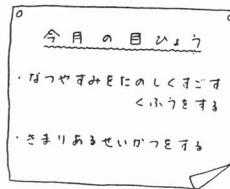 今月の目ひょう
・なつやすみをたのしくすごす
くふうをする
・きまりあるせいかつをする